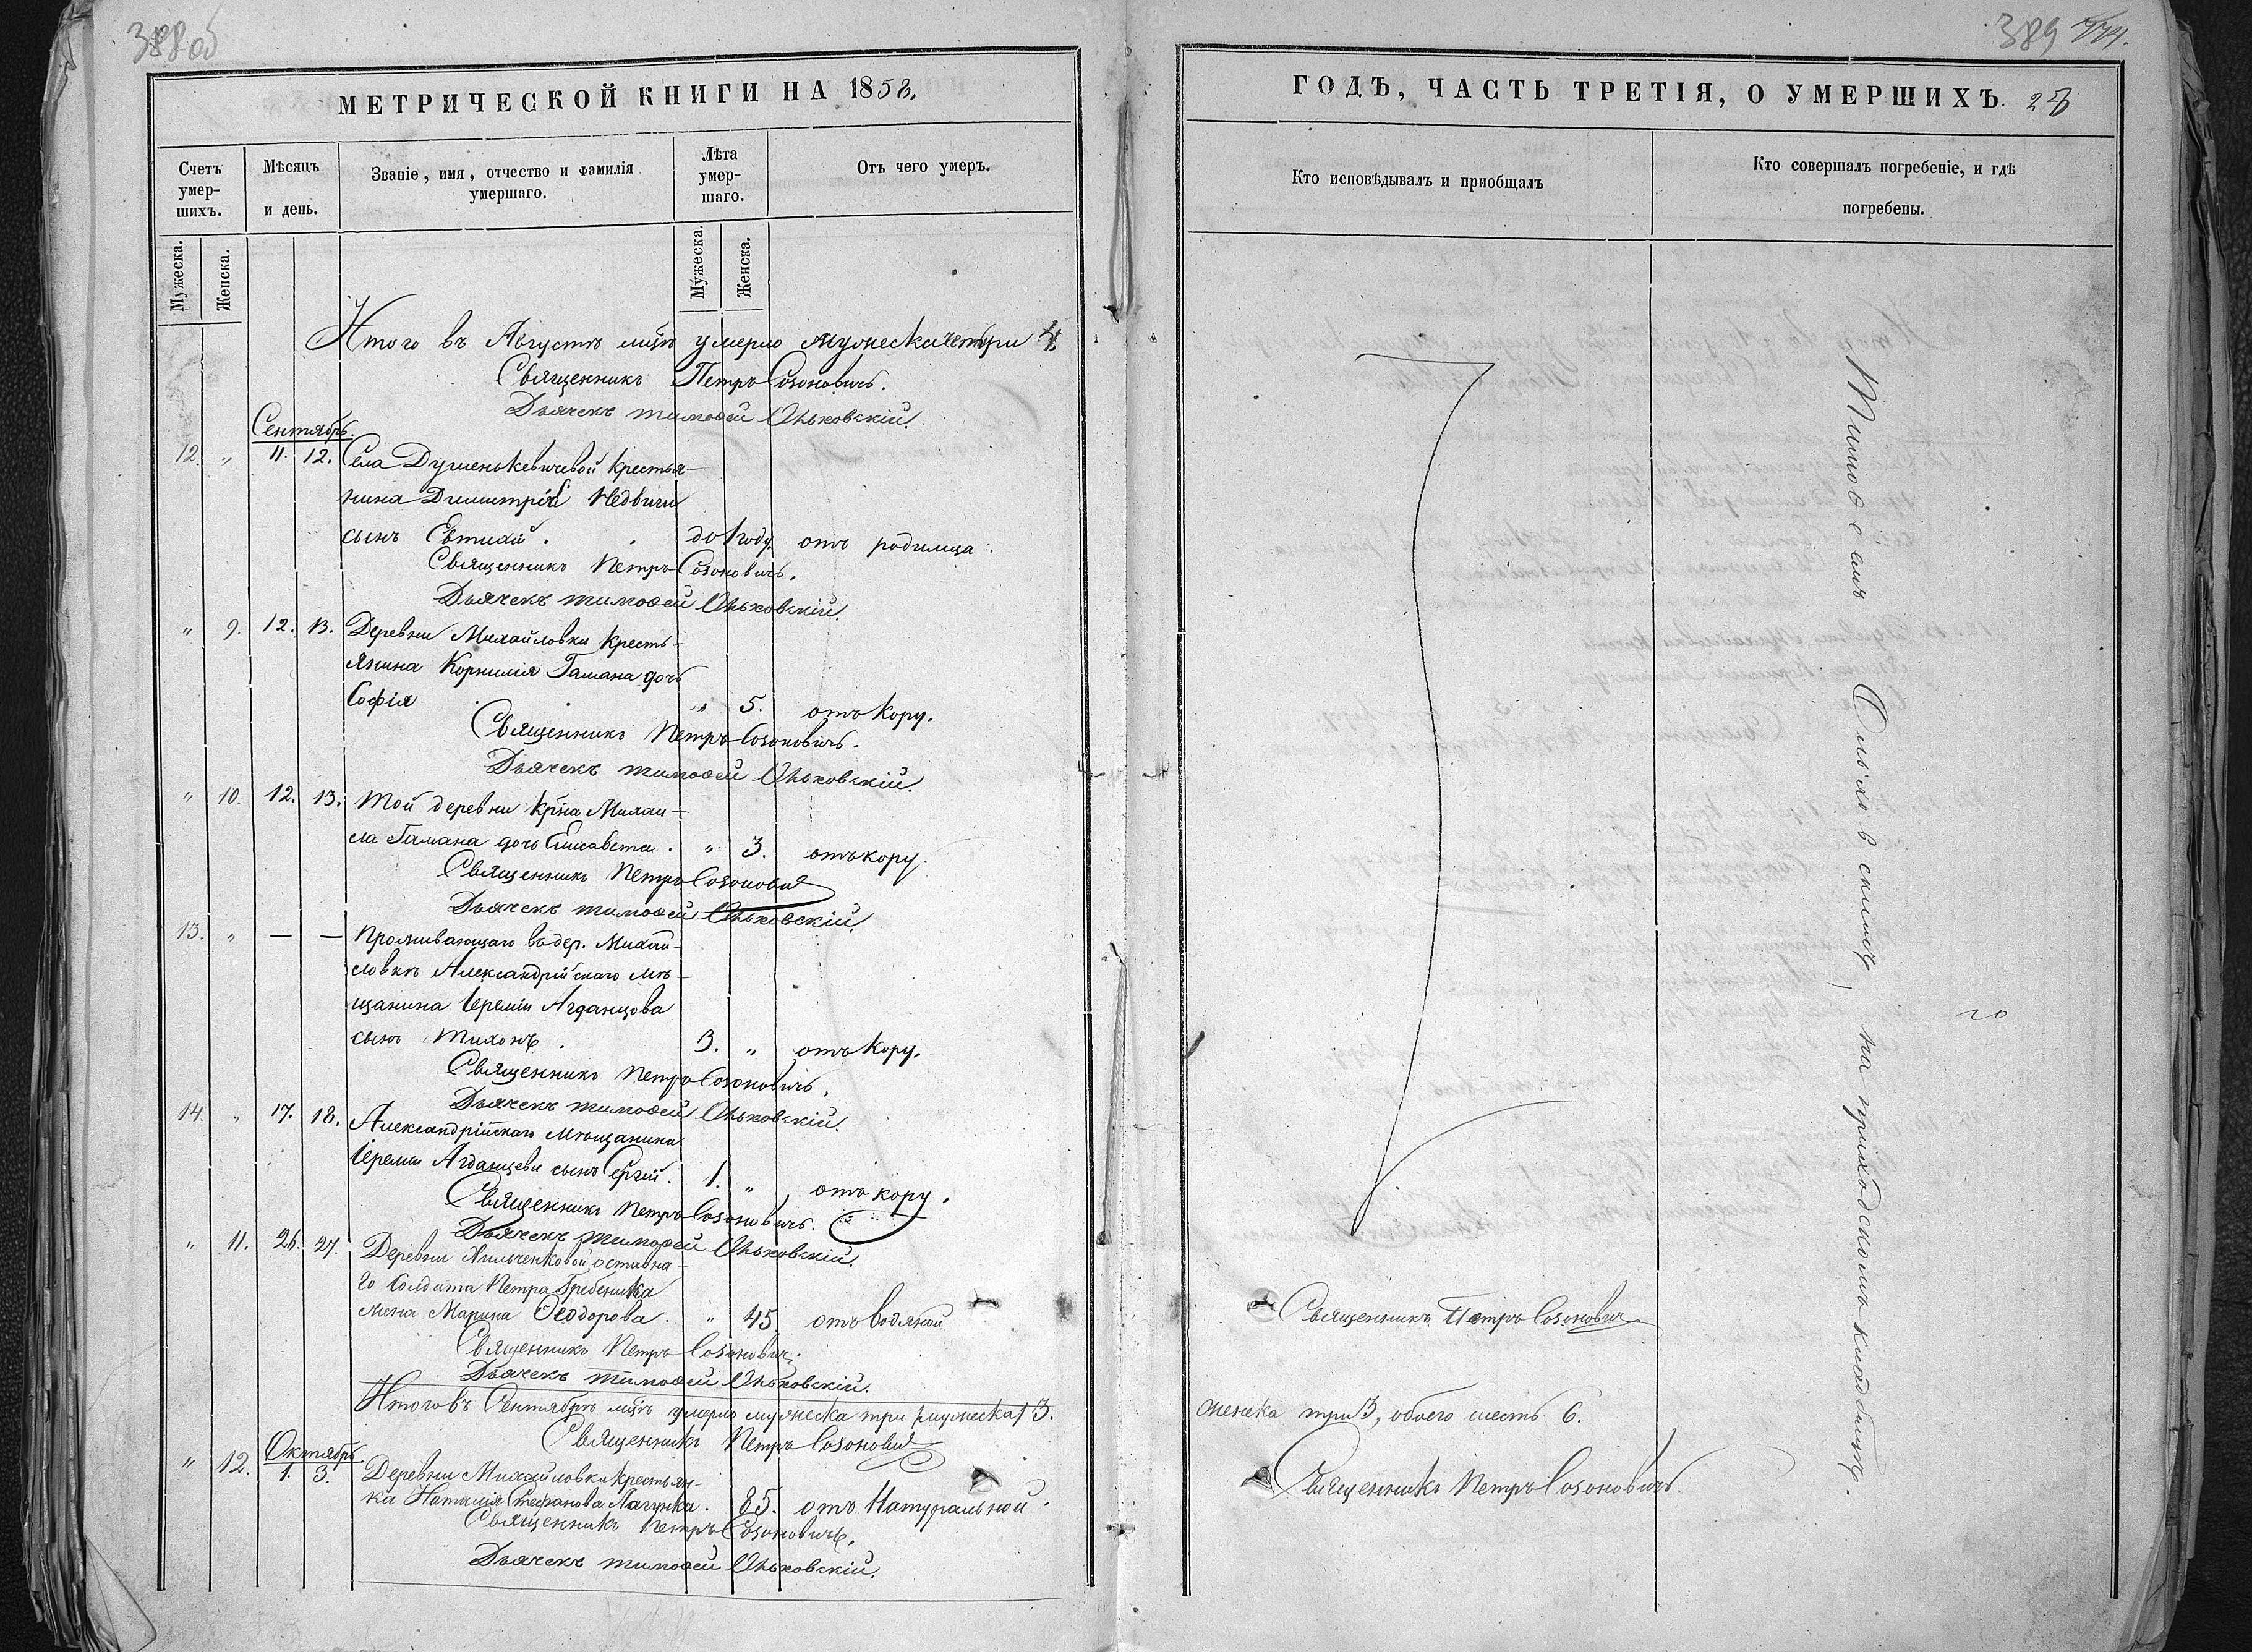 388 об
МЕТРИЧЕСКОЙ КНИГИ НА 1858.
Счетъ умер-шихъ.
Мѣсяцъ и день.
Званіе, имя, отчество и фамилія умершаго.
Лѣта умер-шаго.
Отъ чего умеръ.
Мужеска.
Женска.
Мужеска.
Женска.
Итого въ Августѣ мцѣ умерло мужеска четыри 4
Священникъ Петръ Созоновичъ.
Дьячекъ Тимофей Оньковскій.
Сентябрь.
12. „ 11. 12. Села Душенькевичевой крестья-
нина Димитрія
сынъ Евтихій. до 1 году. отъ родимца.
Священникъ Петръ Созоновичъ.
Дьячекъ Тимофей Оньковскій.
„ 9. 12. 13. Деревни Михайловки кресть-
янина Корнилія Гамана дочь
Софія „ 5. отъ кору.
Священникъ Петръ Созоновичъ.
Дьячекъ Тимофей Оньковскій.
„ 10. 12. 13. Той деревни кр̃на Михаи-
ла Гамана дочь Елисавета. „ 3. отъ кору.
Священникъ Петръ Созоновичъ
Дьячекъ Тимофей Оньковскій.
13. „ — — Проживающаго въ дер. Михай-
ловкѣ Александрійскаго мѣ-
щанина Іереміи Агданцова
сынъ Тихонъ. 3. „ отъ кору.
Священникъ Петръ Созоновичъ.
Дьячекъ Тимофей Оньковскій.
14. „ 17. 18. Александрійскаго мѣщанина
Іереміи Агданцева сынъ Сергій. 1. „ отъ кору.
Священникъ Петръ Созоновичъ.
Дьячекъ Тимофей Оньковскій.
„ 11. 26. 27. Деревни отставна-
го солдата Петра Гребеника
жена Марина Ѳеодорова. „ 45. отъ водяной
Священникъ Петръ Созоновичъ.
Дьячекъ Тимофей Оньковскій.
Итого въ Сентябрѣ мцѣ умерло мужеска три (мужеска) 3.
Священникъ Петръ Созоновичъ
Октябрь
„ 12. 1. 3. Деревни Михайловки крестьян-
ка Наталія Стефанова Лагунка. 85. отъ натуральной.
Священникъ Петръ Созоновичъ.
Дьячекъ Тимофей Оньковскій.
389
ГОДЪ, ЧАСТЬ ТРЕТІЯ, О УМЕРШИХЪ.
Кто исповѣдывалъ и пріобщалъ
Кто совершалъ погребеніе, и гдѣ погребены.
на приходскомъ кладбищѣ.
Священникъ Петръ Созоновичъ
женска три 3, обоего шесть 6.
Священникъ Петръ Созоновичъ.